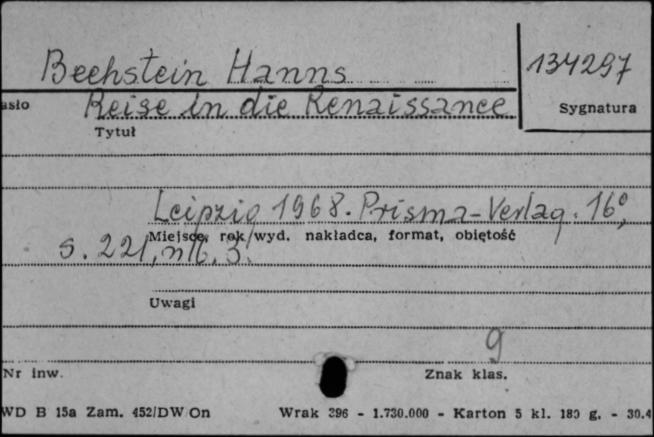 Bechstein Hanns 134297
asło Reise in die Renaissance Sygnatura
Tytuł
Leipzig 1968. Prisma-Verlag. 16°,
Miejsce, rok wyd. nakładca, format, objętość
s. 221,
Uwagi
9
Nr inw. Znak klas.
WD B 15a Zam. 452/DW On Wrak 396 - 1.730.000 - Karton 5 kl. 180 g. - 30.4